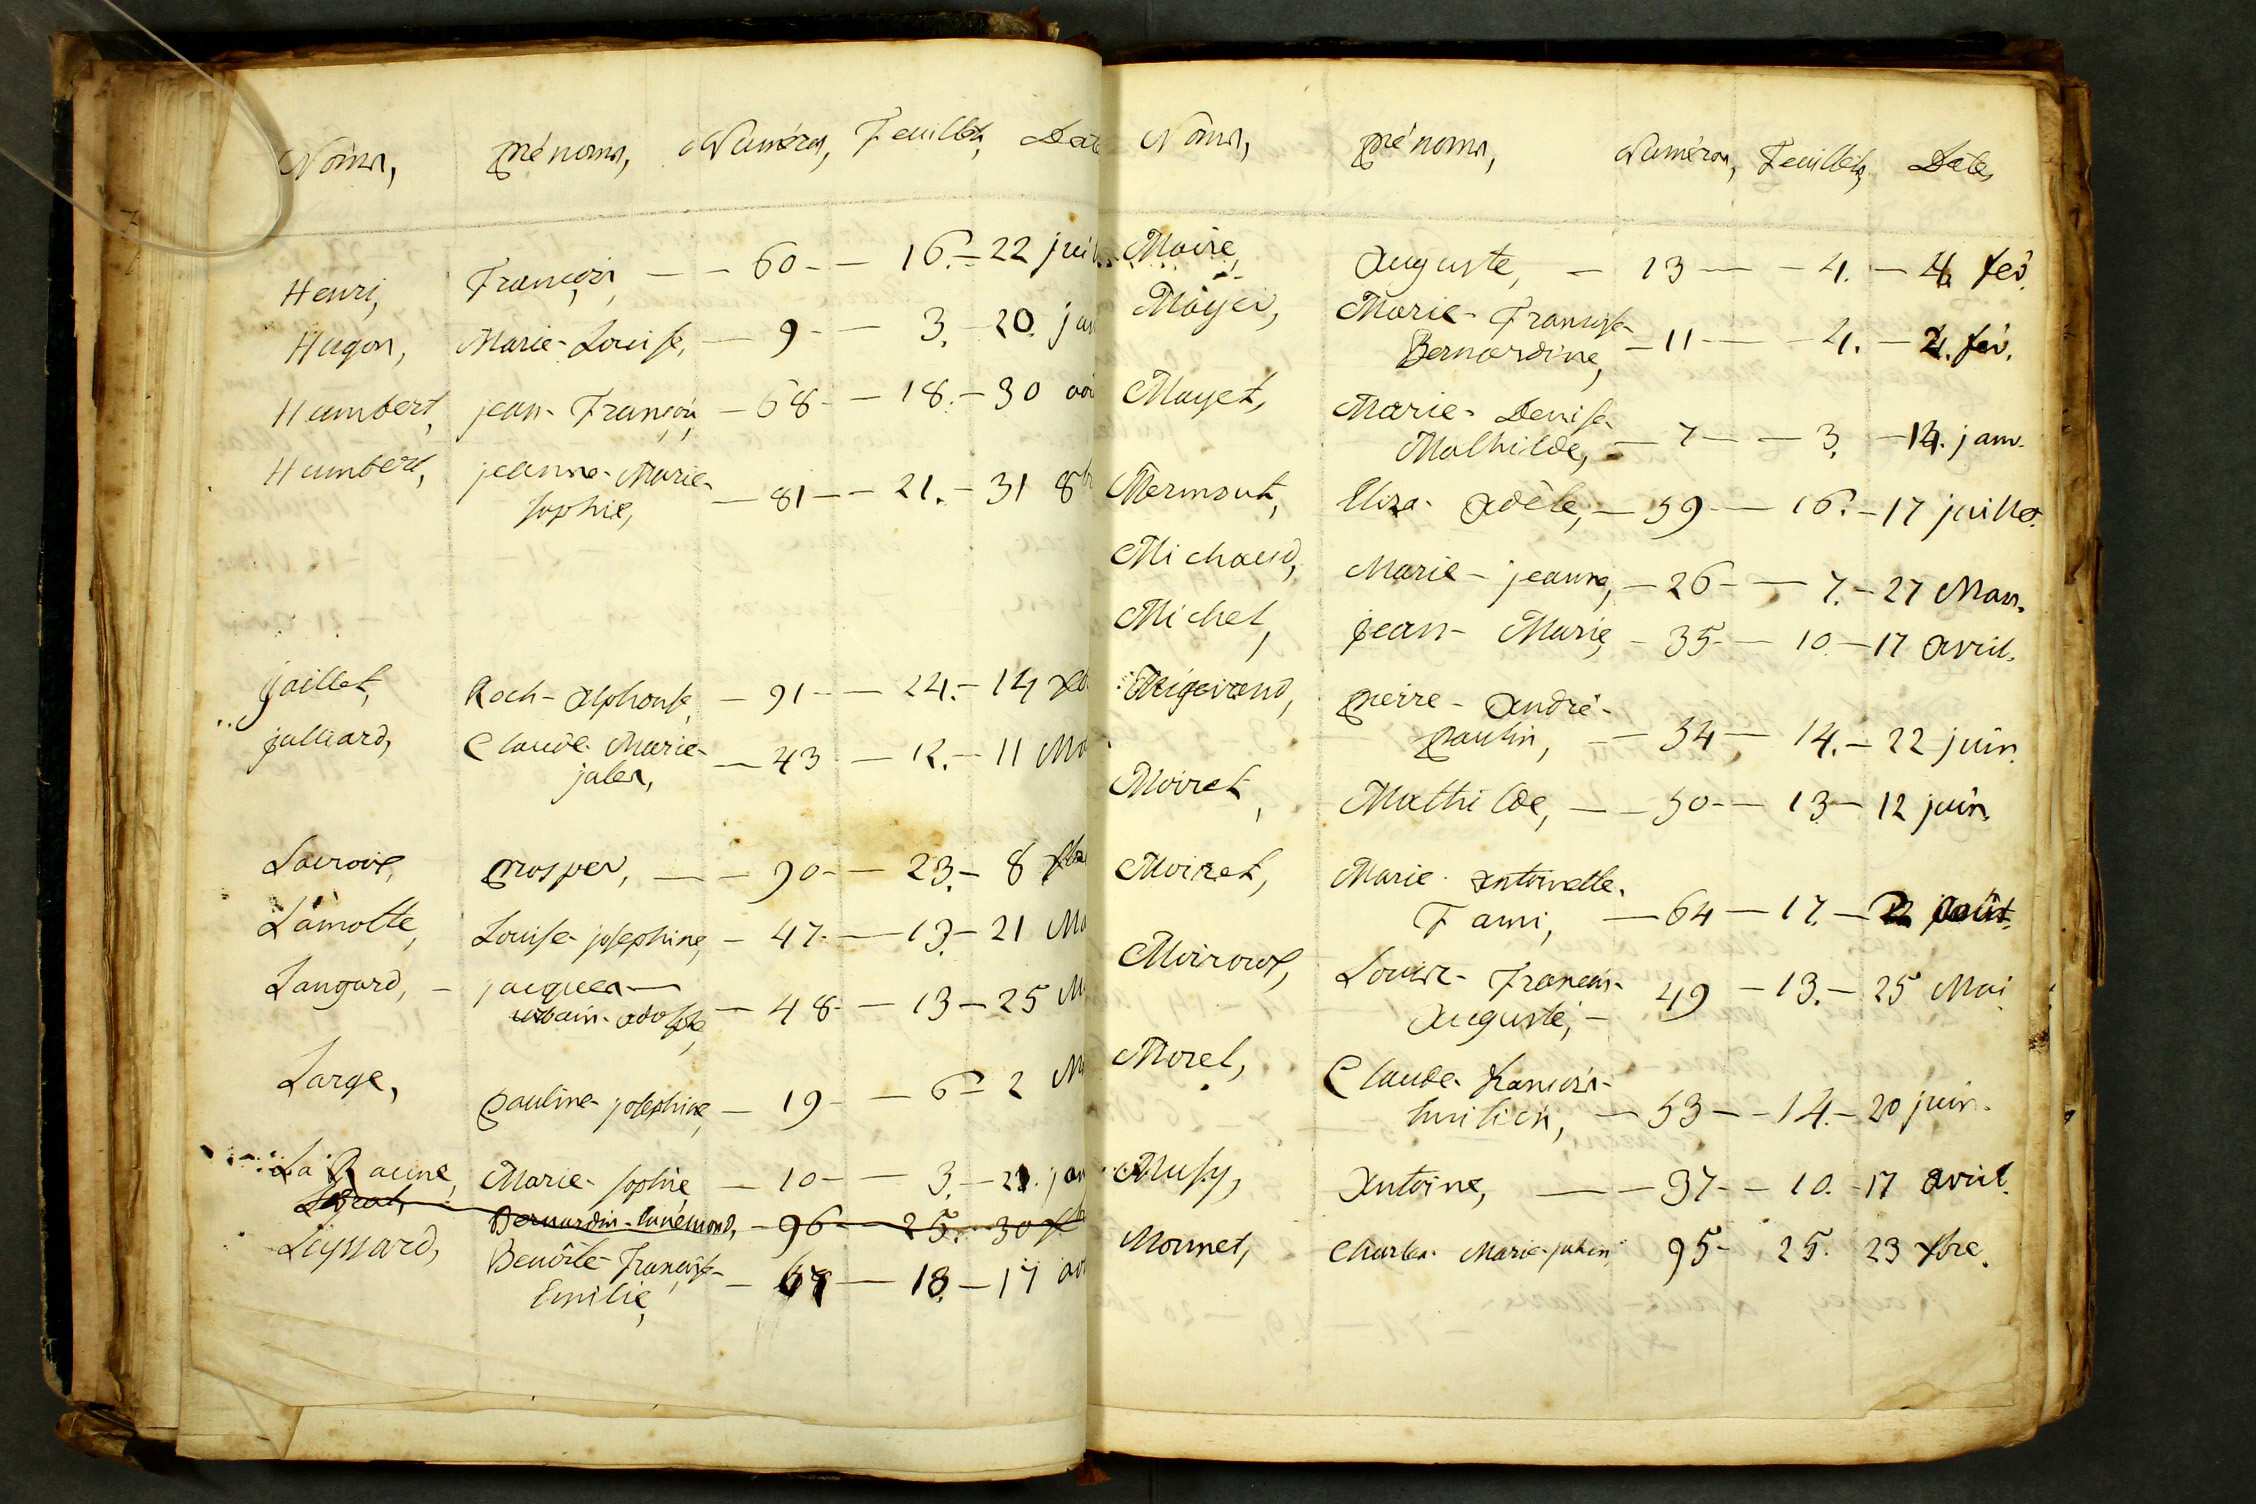 Noms, Prénoms, Numéros, Feuillets, Dat
Henri, François, — — 60 — — 16. — 22 juil
Hugon, Marie-Louise, — 9 — — 3. — 20. jan
Humbert, jean-François, — 68 — — 18. — 30 aoû
Humbert, jeanne-Marie-
sophie, — 81 — — 21. — 31 8b
jaillet, Roch-alphonse, — 91 — — 24. — 14 xb
julliard, Claude-Marie-
jules, — 43 — 12. — 11 Ma
Lacroix, prosper, — — 90 — — 23. — 8 xbre
Lamotte, Louise-josephine, — 47 — — 13. — 21 Ma
Langard, — jacques —
urbain-adolphe, — 48 — — 13 — 25 M
Large, pauline-josephine, — 19 — — 6 — 2 M
La Racine, Marie-sophie, — 10 — — 3. — 21. jan
Bernardin- — 96 — 25. — 30 xb
Leyssard, Benoîte-Françoise-
Emilie, — 67 — 18. — 17 ao
Noms, Prénoms, Numéros, Feuillets, Dates
Maire, Auguste, — 13 — — 4. — 4. fév.
Mayer, Marie-Françoise-
Bernardine, — 11 — — 4. — 2. fév.
Mayet, Marie-Denise-
Mathilde, — 7 — — 3. — 14. janv.
Mermout, Eliza-adèle, — 59 — — 16. — 17 juillet.
Michaud, Marie-jeanne, — 26 — — 7. — 27 Mars.
Michel, jean-Marie, — 35 — — 10. — 17 avril.
Migevand, pierre-andré-
paulin, — — 54 — 14. — 22 juin.
Moiret, Mathilde, — — 50 — — 13 — 12 juin.
Moiret, Marie-antoinette-
Fanni, — 64 — 17. — août.
Moiroux, Louise-François-
auguste, — 49 — 13. — 25 Mai
Morel, Claude-François-
Emilien, — 53 — — 14. — 20 juin.
Musy, Antoine, — — 37 — — 10. — 17 avril.
Monnet, Charles-Marie-julien, 95 — 25. 23 xbre.